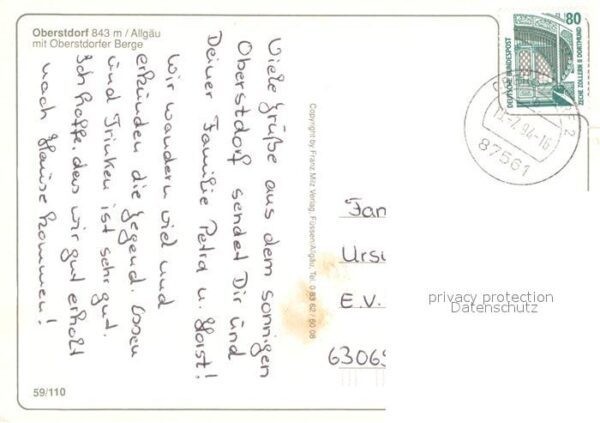 Oberstdorf 843 m / Allgäu
mit Oberstdorfer Berge
Viele Grüße aus dem sonnigen
Oberstdorf sendet Dir und
Deiner Familie Petra u. Horst!
Wir wandern viel und
erkunden die Gegend. Essen
und Trinken ist sehr gut.
Ich hoffe, dass wir gut erholt
nach Hause kommen!
Copyright by Franz Milz Verlag, Füssen/Allgäu, Tel. 0 83 62 / 50 08
80
DEUTSCHE BUNDESPOST
ZECHE ZOLLERN II DORTMUND
94-16
87561
Fam
Ursu
E.V.
63065
privacy protection
Datenschutz
59/110